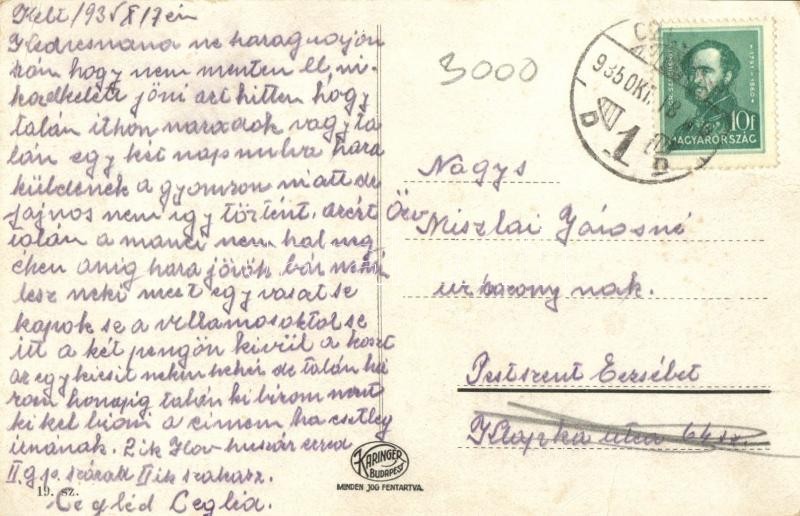 Kelt 1935 X/17én
Kedresmama ne haragudjon
rám hogy nem mentem el, mi-
kor elkelett jöni azt hittem hogy
talán ithon maradok vagy ta
lán egy két nap mulva haza
küldenek a gyomrom miatt de
sajnos nem igy történt. azért
talán a manci nem hal meg
éhen amig haza jövök bár nehéz
lesz neki mert egy vasat se
kapok se a villamosoktol se
itt a két pengön kivül a koszt
az egy kicsit nekem nehéz de talán há
rom honapig talán ki birom mert
ki kel birni a cimem ha esetleg
irnának. 2ik Hov huszár ezred
II. g.p. század IIik szakasz.
Cegléd Cegléd.
3000
935 OKT. 8
1
D D
1791-1860
10f
MAGYARORSZÁG
Nagys
Özv
Miszlai Jánosné
urasszonynak.
Pestszent Erzsébet
Klapka utca 64 sz.
KARINGER
BUDAPEST
MINDEN JOG FENTARTVA.
19. sz.